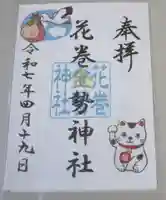 奉拝
花巻金勢神社
花巻
神社
令和七年四月十九日